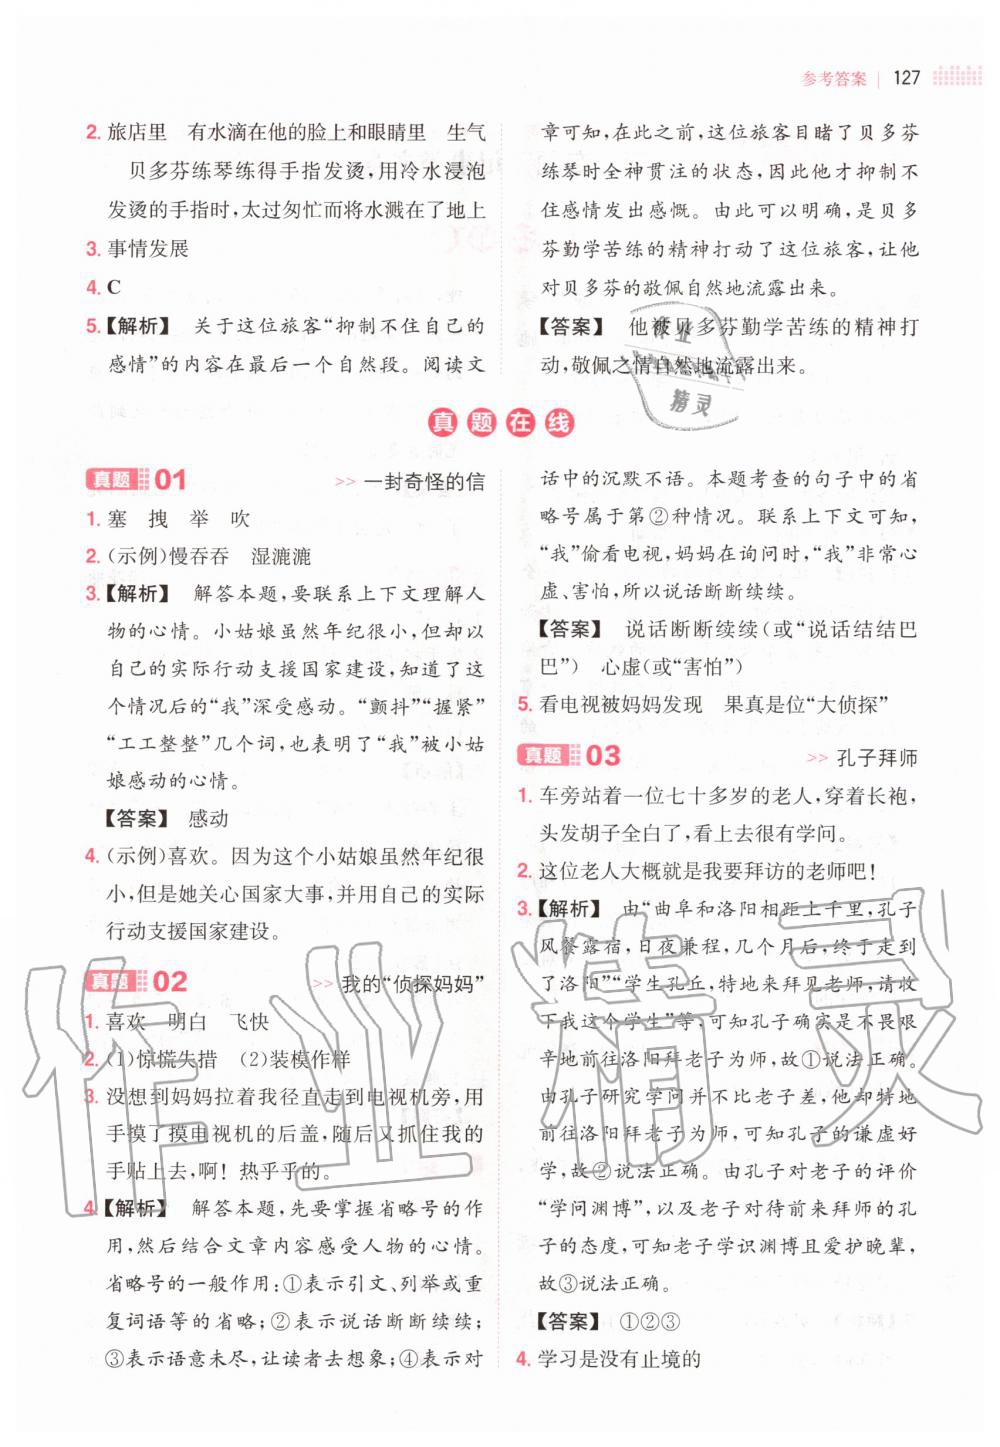 参考答案 127
2. 旅店里 有水滴在他的脸上和眼睛里 生气
贝多芬练琴练得手指发烫,用冷水浸泡
发烫的手指时,太过匆忙而将水溅在了地上
3. 事情发展
4. C
5.【解析】 关于这位旅客“抑制不住自己的
感情”的内容在最后一个自然段。阅读文
章可知,在此之前,这位旅客目睹了贝多芬
练琴时全神贯注的状态,因此他才抑制不
住感情发出感慨。由此可以明确,是贝多
芬勤学苦练的精神打动了这位旅客,让他
对贝多芬的敬佩自然地流露出来。
【答案】 他被贝多芬勤学苦练的精神打
动,敬佩之情自然地流露出来。
真题在线
真题 01 >> 一封奇怪的信
1. 塞 拽 举 吹
2. (示例)慢吞吞 湿漉漉
3.【解析】 解答本题,要联系上下文理解人
物的心情。小姑娘虽然年纪很小,但却以
自己的实际行动支援国家建设,知道了这
个情况后的“我”深受感动。“颤抖”“握紧”
“工工整整”几个词,也表明了“我”被小姑
娘感动的心情。
【答案】 感动
4. (示例)喜欢。因为这个小姑娘虽然年纪很
小,但是她关心国家大事,并用自己的实际
行动支援国家建设。
真题 02 >> 我的“侦探妈妈”
1. 喜欢 明白 飞快
2. (1)惊慌失措 (2)装模作样
3. 没想到妈妈拉着我径直走到电视机旁,用
手摸了摸电视机的后盖,随后又抓住我的
手贴上去,啊!热乎乎的。
4.【解析】 解答本题,先要掌握省略号的作
用,然后结合文章内容感受人物的心情。
省略号的一般作用:①表示引文、列举或重
复词语等的省略;②表示说话断断续续;
③表示语意未尽,让读者去想象;④表示对
话中的沉默不语。本题考查的句子中的省
略号属于第②种情况。联系上下文可知,
“我”偷看电视,妈妈在询问时,“我”非常心
虚、害怕,所以说话断断续续。
【答案】 说话断断续续(或“说话结结巴
巴”) 心虚(或“害怕”)
5. 看电视被妈妈发现 果真是位“大侦探”
真题 03 >> 孔子拜师
1. 车旁站着一位七十多岁的老人,穿着长袍,
头发胡子全白了,看上去很有学问。
2. 这位老人大概就是我要拜访的老师吧!
3.【解析】 由“曲阜和洛阳相距上千里,孔子
风餐露宿,日夜兼程,几个月后,终于走到
了洛阳”“学生孔丘,特地来拜见老师,请收
下我这个学生”等,可知孔子确实是不畏艰
辛地前往洛阳拜老子为师,故①说法正确。
由孔子研究学问并不比老子差,他却特地
前往洛阳拜老子为师,可知孔子的谦虚好
学,故②说法正确。由孔子对老子的评价
“学问渊博”,以及老子对待前来拜师的孔
子的态度,可知老子学识渊博且爱护晚辈,
故③说法正确。
【答案】 ①②③
4. 学习是没有止境的
作业精灵
作业
精灵